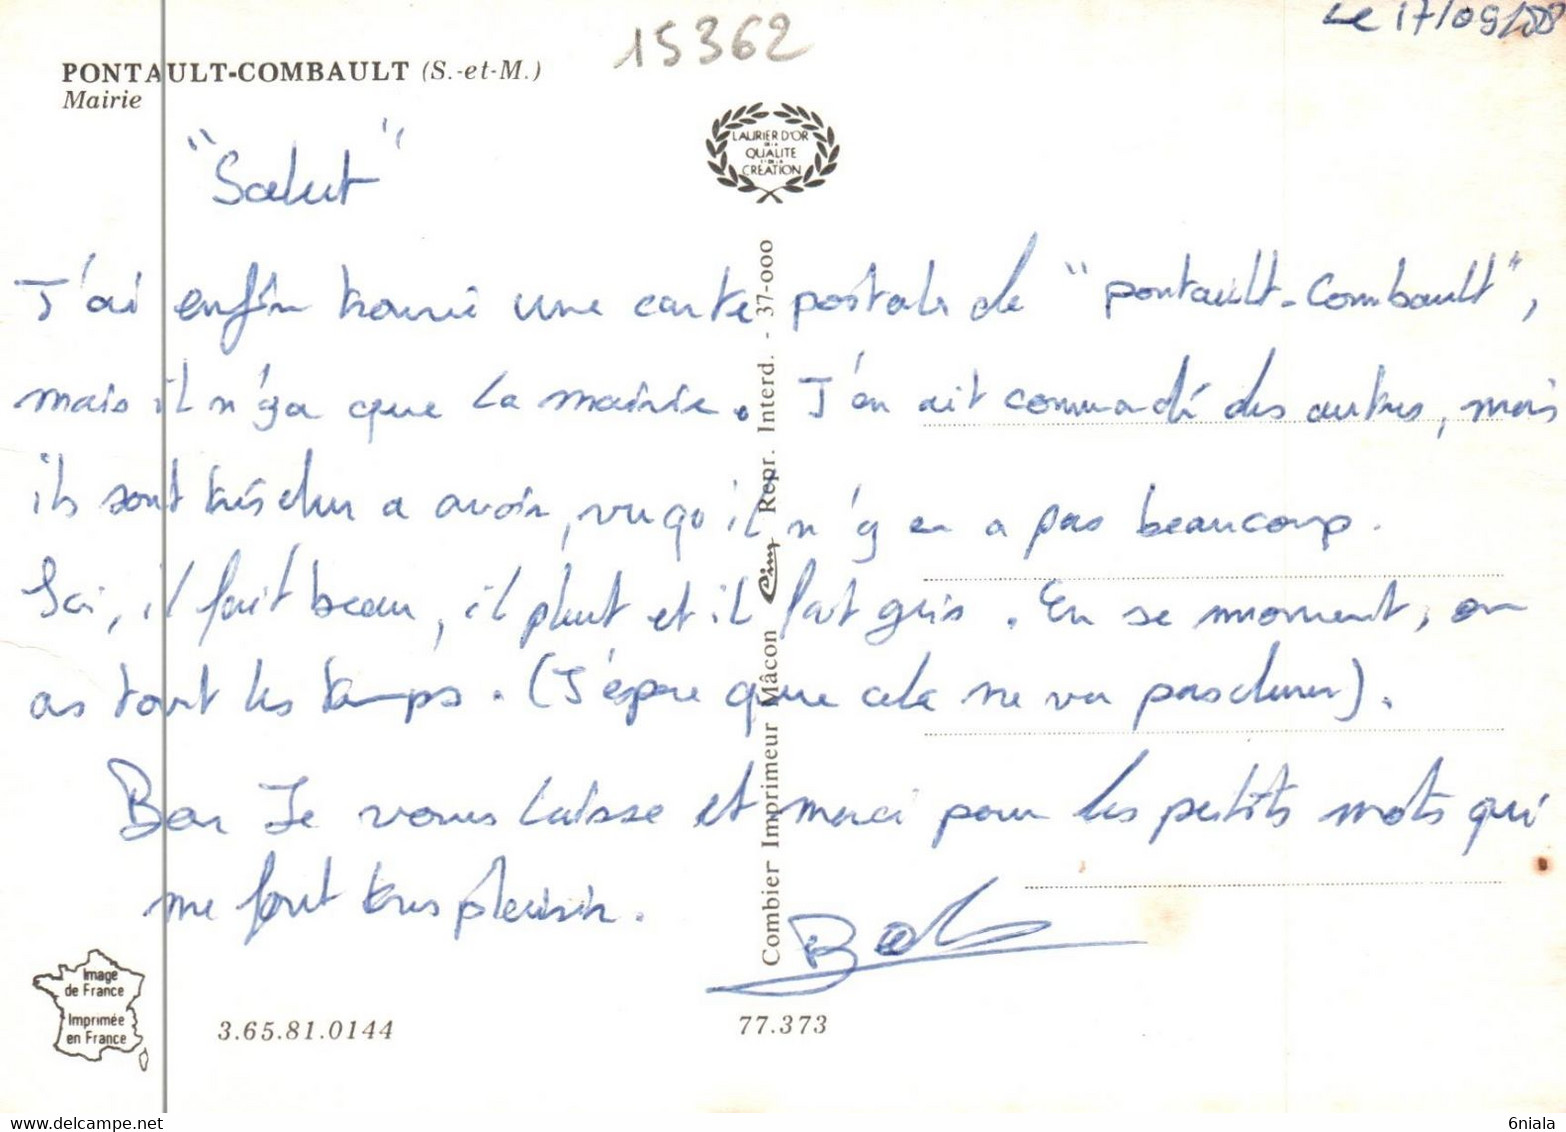 15362
Le 17/09/
PONTAULT-COMBAULT (S.-et-M.)
Mairie
LAURIER D'OR
DE LA
QUALITE
CREATION
"Salut"
J'ai enfin trouvé une carte postale de "pontault-Combault",
mais il n'ya que la mairie. J'en ait commandé des autres, mais
ils sont très dur a avoir, vu qu'il n'y en a pas beaucoup.
Ici, il fait beau, il pleut et il fait gris. En se moment, on
as tout les temps. (J'espere que cela ne va pas durer).
Bon Je vous laisse et merci pour les petits mots qui
me font tres plaisir.
Bob
Combier Imprimeur Mâcon Cim Repr. Interd. - 37-000
Image
de France
Imprimée
en France
3.65.81.0144
77.373
6niala